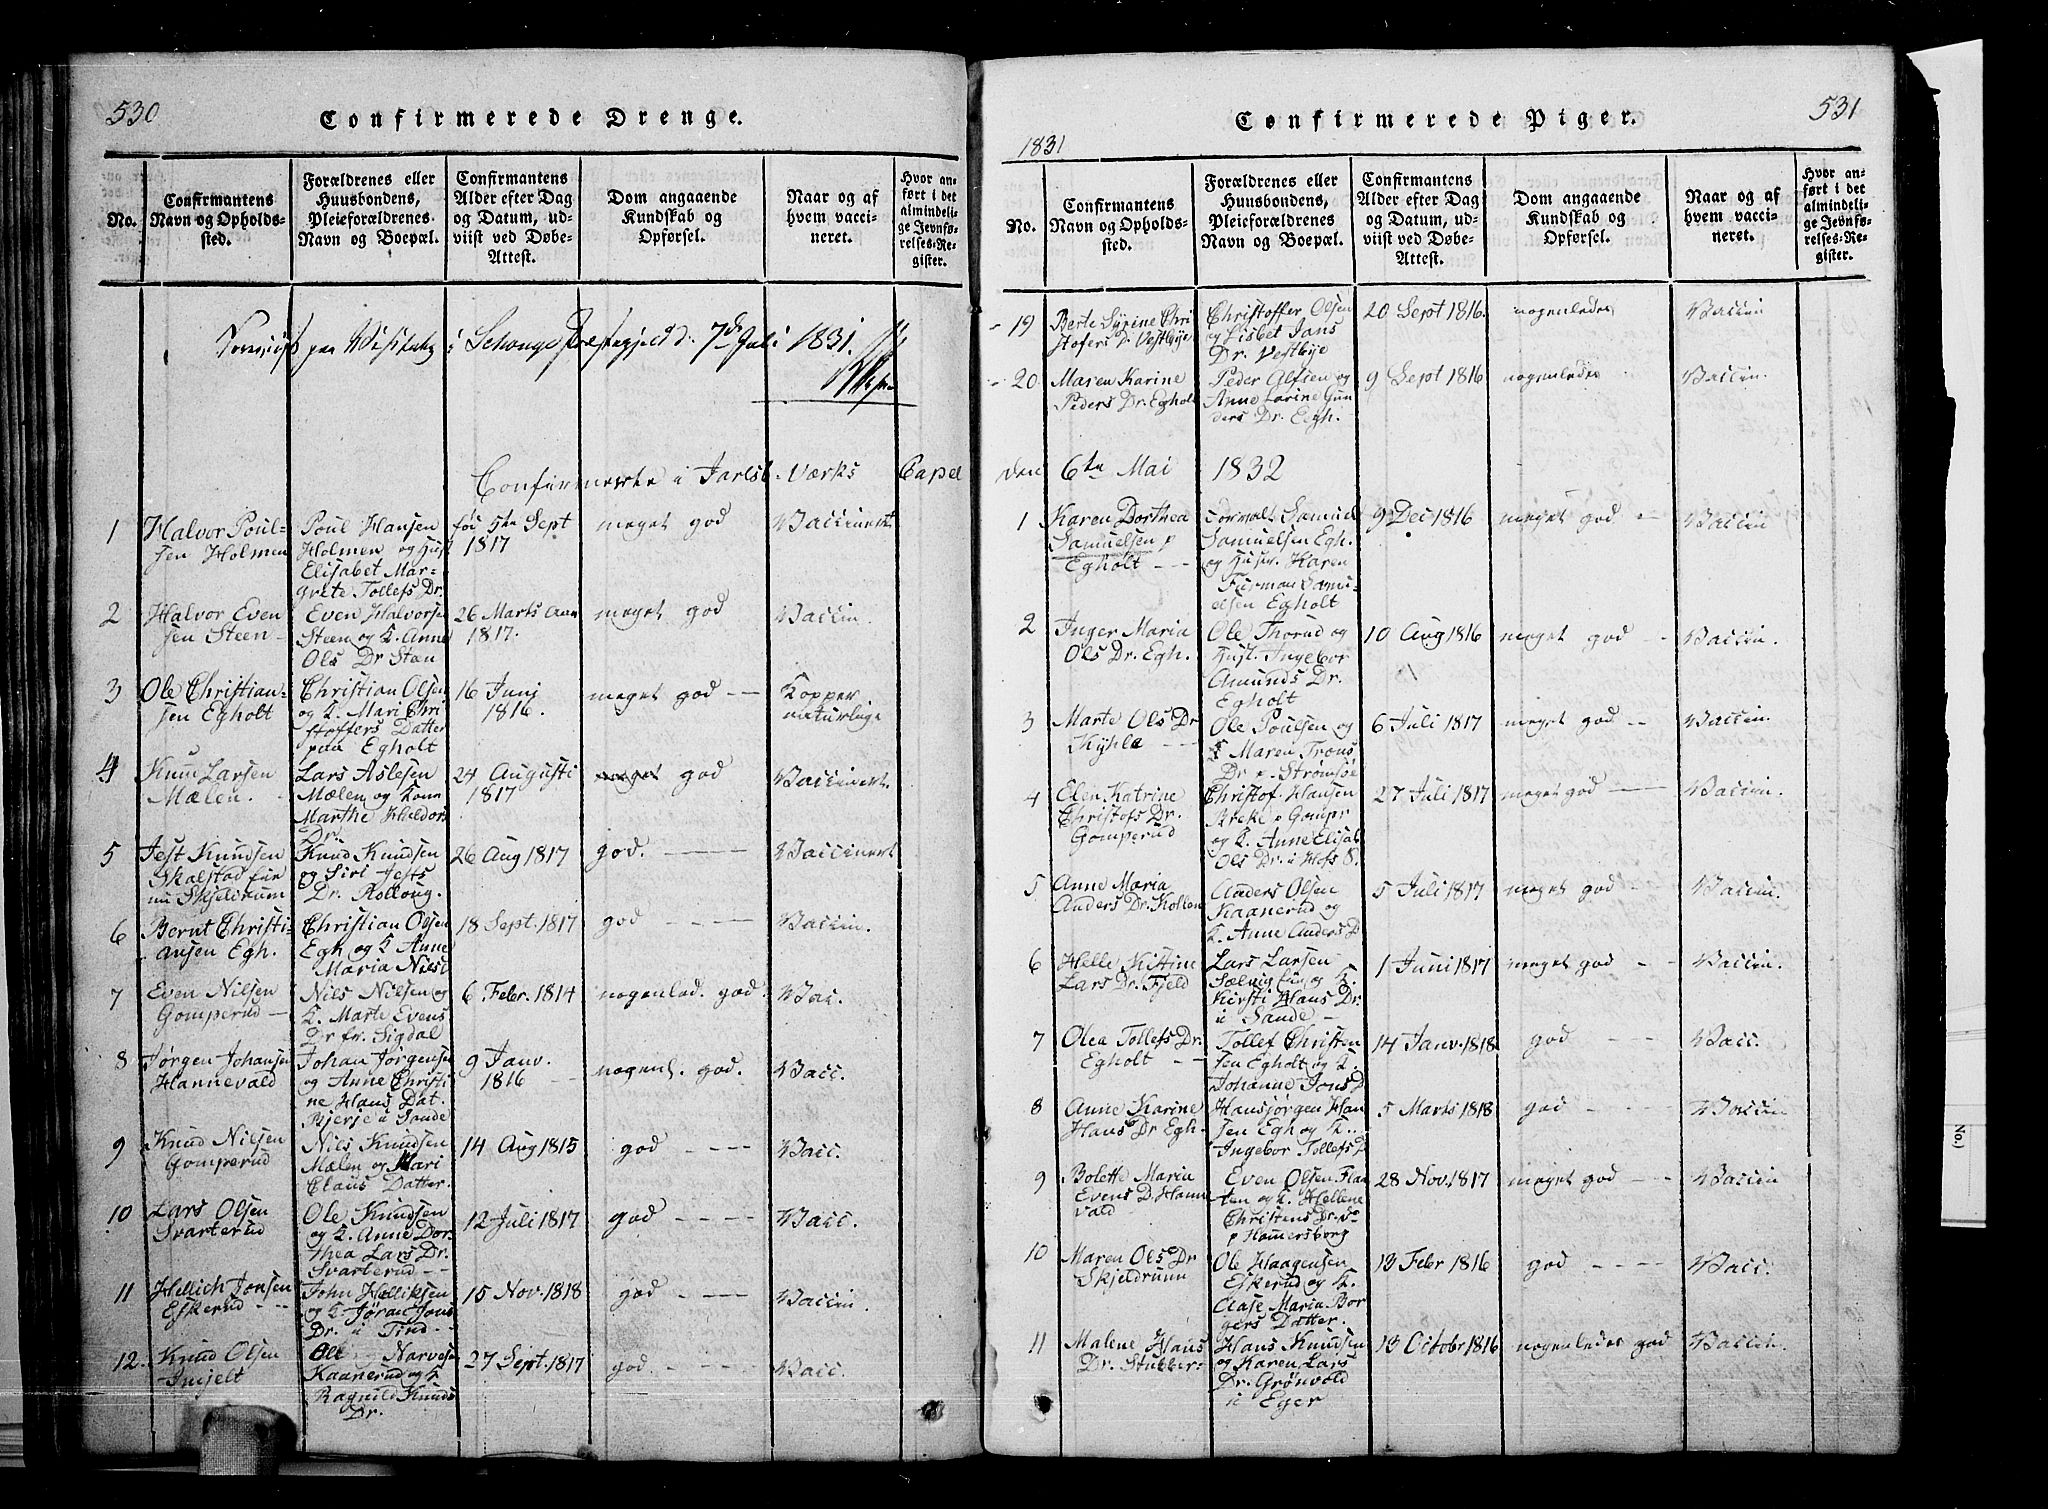 530
Confirmerede Drenge.
No.
Confirmantens
Navn og Opholds-
sted.
Forældrenes eller
Huusbondens,
Pleieforældrenes
Navn og Boepæl.
Confirmantens
Alder efter Dag
og Datum, ud-
viist ved Døbe-
Attest.
Dom angaaende
Kundskab og
Opførsel.
Naar og af
hvem vacci-
neret.
Hvor an-
ført i det
almindeli-
ge Jevnfø-
relses-Re-
gister.
paa Visitatz i 7de Juli 1831.
Confirmerte i Jarlsb. Værks Capel
1
Halvor Poul-
sen Holmen
Poul Hansen
Holmen og Hust
Elisabet Mar-
grete Tollefs Dr.
fød 5te Sept
1817
meget god
Vaccinert
2
Halvor Even
sen Steen
Even Halvorse
Steen og K. Anne
Ols Dr Steen
26 Marts
1817.
meget god
Vaccin.
3
Ole Christian-
sen Egholt
Christian Olsen
og K. Mari Chri
stoffers Datter
paa Egholt
16 Juni
1816.
meget god
Kopper
naturlige
4
Knud Larsen
Mælen.
Lars Aslesen
Mælen og Kone
Marthe Haldors
Dr.
24 Augusti
1817
meget god
Vaccinert.
5
Jest Knudsen
Skalstad
nu Skjeldrum
Knud Knudsen
og Siri Jests
Dr. Kolloug.
26 Aug 1817
god.
Vaccinert
6
Bernt Christi-
ansen Egh.
Christian Olsen
Egh og K Anne
Maria Nilsd
18 Sept. 1817
god
Vaccin.
7
Even Nilsen
Gomperud
Nils Nilsen og
K. Marte Evens
Dr fr. Sigdal
6 Febr. 1814
nogenled. god.
Vac.
8
Jørgen Johansen
Hannevald
Johan Jørgensen
og Anne Christi
ne Hans Dat.
Bjerje i Sande
9 Janv.
1816
nogenl. god.
Vacc.
9
Knud Nilsen
Gomperud
Nils Knudsen
Mælen og Mari
Claus Datter.
14 Aug 1815
god
Vacc.
10
Lars Olsen
Svarterud
Ole Knudsen
og K. Anne Dor-
thea Lars Dr.
Svarterud
12 Juli 1817
god
Vacc.
11
Hellich Jonsen
Eskerud
John Helliksen
og K Jøran Jons
Dr. i Tind
15 Nov. 1818
god
Vaccin.
12.
Knud Olsen
Ole Narvesen
Kaanerud og K
Ragnild Knuds
Dr.
27 Sept. 1817
god
Vacc.
531
Confirmerede Piger.
1831
No.
Confirmantens
Navn og Opholds-
sted.
Forældrenes eller
Huusbondens,
Pleieforældrenes
Navn og Boepæl.
Confirmantens
Alder efter Dag
og Datum, ud-
viist ved Døbe-
Attest.
Dom angaaende
Kundskab og
Opførsel.
Naar og af
hvem vacci-
neret.
Hvor an-
ført i det
almindeli-
ge Jevnfø-
relses-Re-
gister.
19
Berte Syrine Chri
stofers D. Vestbye
Christoffer Olsen
og Lisbet Jans
Dr. Vestbye
20 Sept 1816.
nogenledes
Vaccin
20
Maren Karine
Peders Dr. Egholt
Peder Alfsen og
Anne Karine Gun
ders Dr. Egh.
9 Sept 1816
nogenledes
Vaccin.
den 6te Mai 1832
1
Karen Dorthea
Samuelsen p
Egholt
Samuel
Samuelsen Egh.
og Hustr. Karen
Samu-
elsen Egholt
9 Dec 1816
meget god
Vaccin
2
Inger Maria
Ols Dr. Egh.
Ole Thorud og
Hust. Ingebor
Amunds Dr.
Egholt
10 Aug 1816
meget god
Vaccin.
3
Marte Ols Dr
Ole Poulsen og
K Maren Trons
Dr p. Strømsøe
6 Juli 1817
meget god
Vaccin.
4
Elen Katrine
Christofs Dr.
Gomperud
Christof. Hansen
Brekke p Gompr
og K. Anne Elisab
Ols Dr. i Hofs S.
27 Juli 1817
meget god
Vaccin.
5
Anne Maria
Anders Dr. Kollen
Anders Olsen
Kaanerud og
K. Anne Anders D
5 Juli 1817
meget god
Vaccin.
6
Helle Kistine
Lars Dr. Fjeld
Lars Larsen
Kirsti Hans Dr.
i Sande
1 Juni 1817
meget god
Vaccin.
7
Olea Tollefs Dr.
Egholt
Tollef Christen
sen Egholt og K.
Johanne Jons D
14 Janv. 1818
god
Vacc.
8
Anne Karine
Hans Dr Egh.
Hansjørgen Han
sen Egh og K.
Ingebor Tollefs D
5 Marts 1818
god
Vaccin
9
Bolette Maria
Evens D. Hanne
vald
Even Olsen Flaa
ten og K. Hellene
Christens Dr.
p Homersborg
28 Nov. 1817
meget god
Vaccin
10
Maren Ols Dr
Skjeldrum
Ole Haagensen
Eskerud og K.
Aase Maria Bor
gers Datter.
13 Febr 1816
god
Vacc.
11
Malene Hans
Dr. Stubber
Hans Knudsen
og Karen Lars
Dr. Grønvold
i Eger
13 Octobr 1816
nogenledes god
Vaccin.
No.)